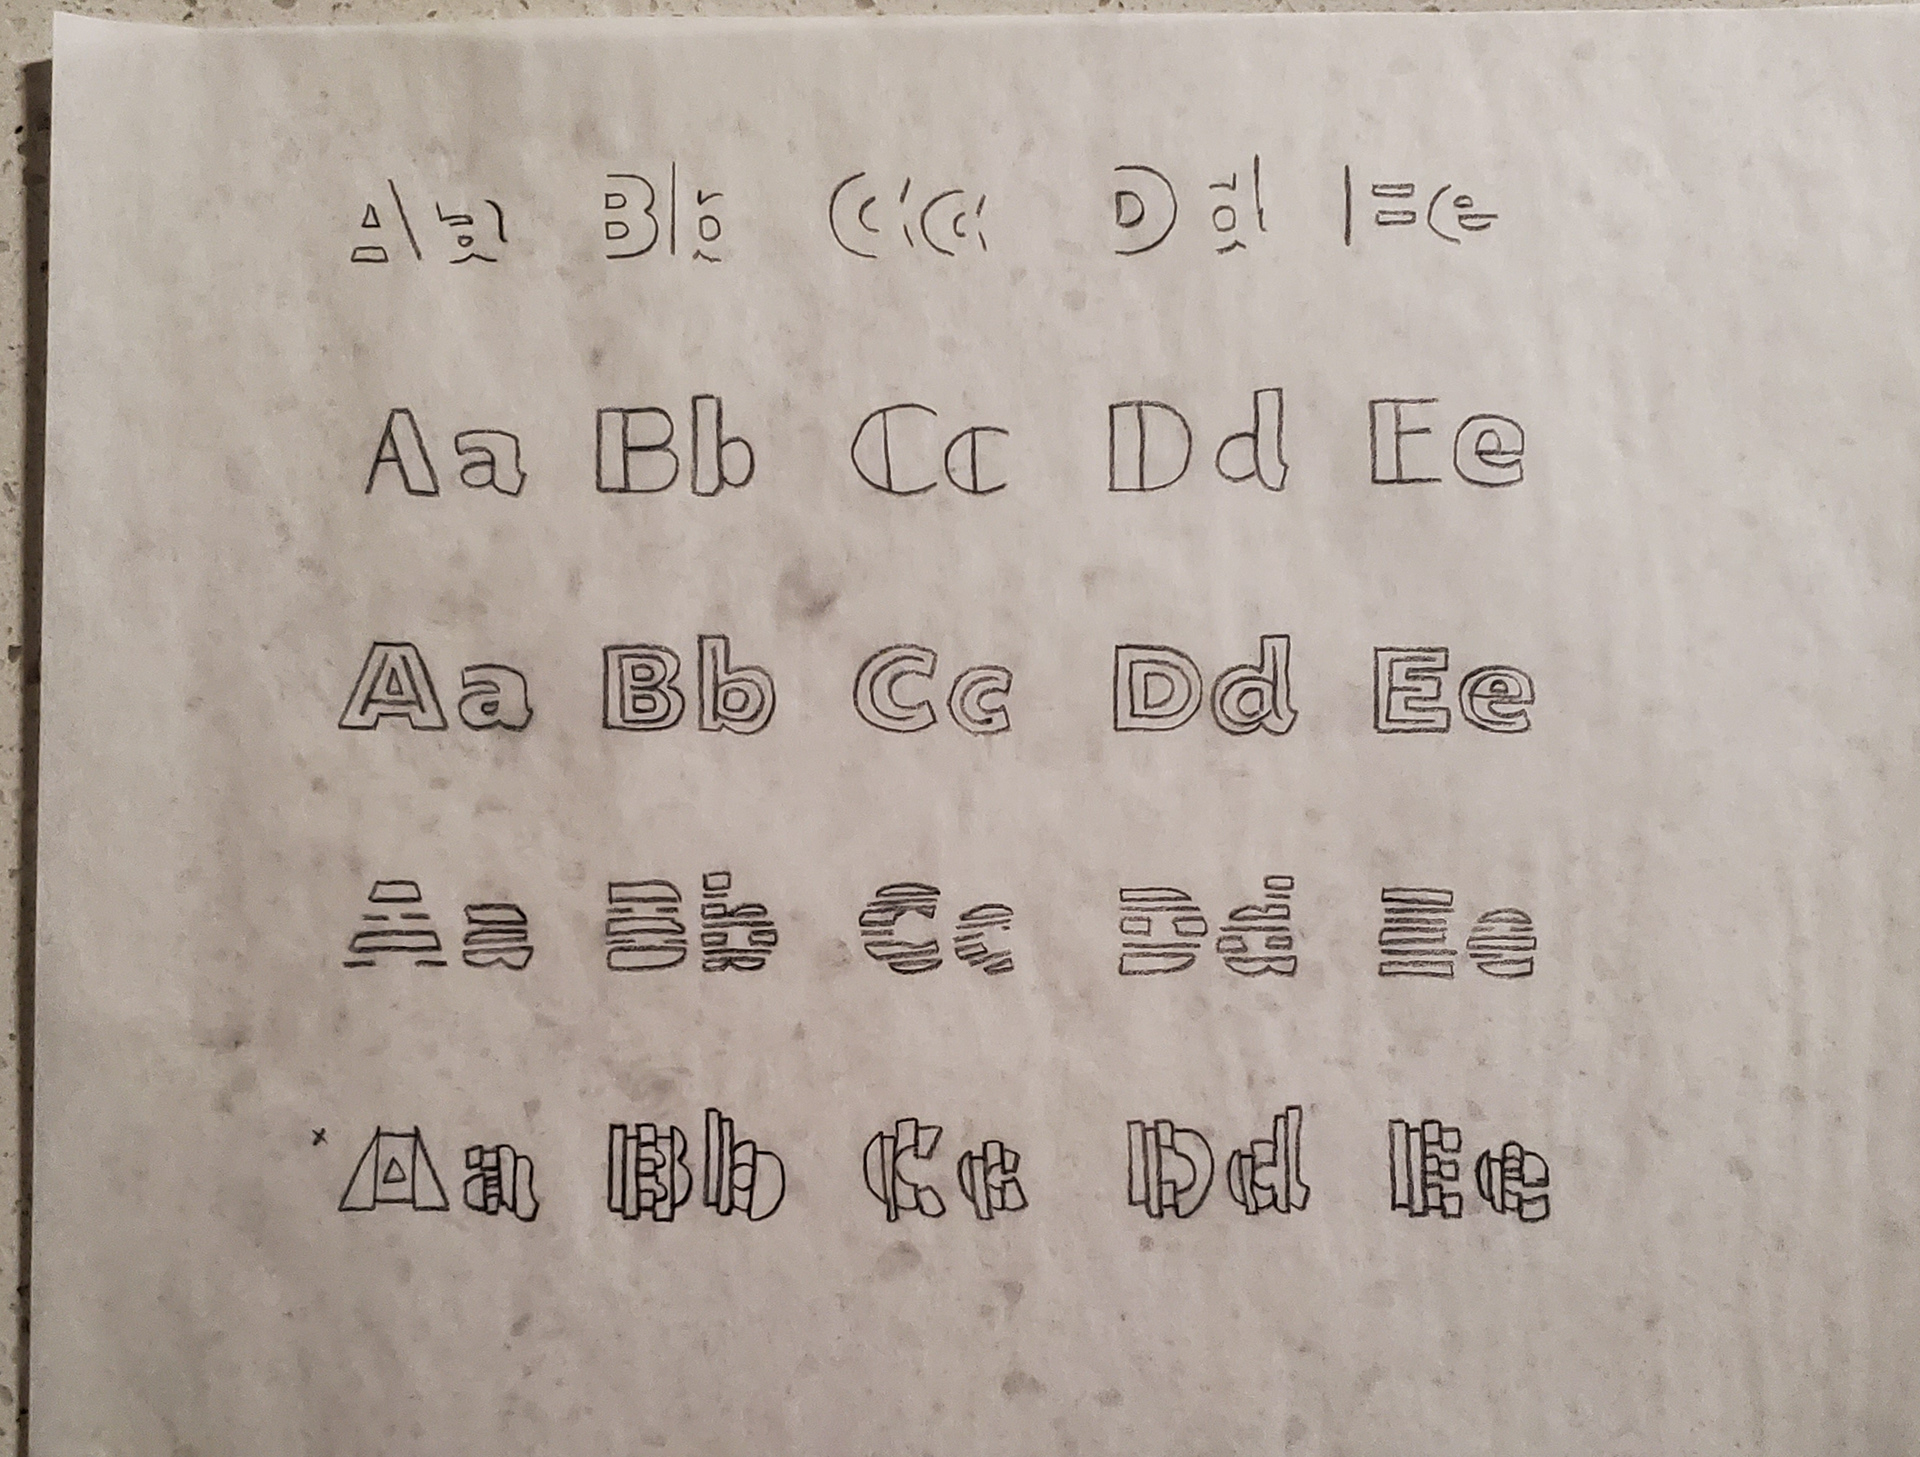 Aa Bb Cc Dd Ee
Aa Bb Cc Dd Ee
Aa Bb Cc Dd Ee
Aa Bb Cc Dd Ee
x Aa Bb Cc Dd Ee